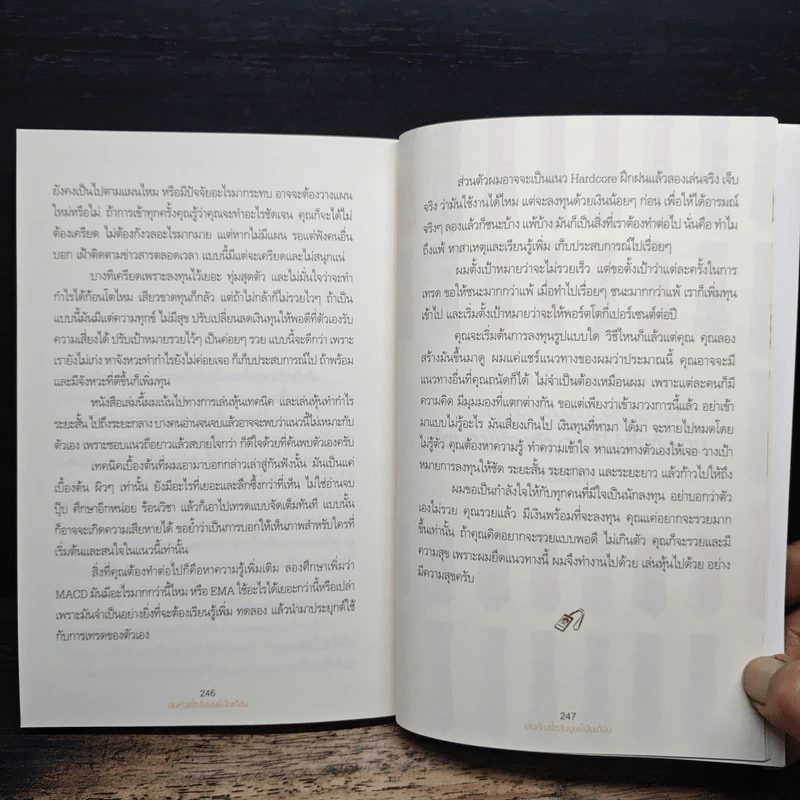 ยังคงเป็นไปตามแผนไหม หรือมีปัจจัยอะไรมากระทบ อาจจะต้องวางแผน
ใหม่หรือไม่ ถ้าการเข้าทุกครั้งคุณรู้ว่าคุณจะทำอะไรชัดเจน คุณก็จะได้ไม่
ต้องเครียด ไม่ต้องกังวลอะไรมากมาย แต่ถ้าหากไม่มีแผน รอแต่ฟังคนอื่น
บอก เฝ้าติดตามข่าวสารตลอดเวลา แบบนี้มีแต่จะเครียดและไม่สนุกแน่
บางทีเครียดเพราะลงทุนไว้เยอะ ทุ่มสุดตัว และไม่มั่นใจว่าจะทำ
กำไรได้ก้อนโตไหม เสียวขาดทุนก็กลัว แต่ถ้าไม่กล้าก็ไม่รวยไวๆ ถ้าเป็น
แบบนี้มันมีแต่ความทุกข์ ไม่มีสุข ปรับเปลี่ยนลดเงินทุนให้พอดีที่ตัวเองรับ
ความเสี่ยงได้ ปรับเป้าหมายรวยไว้ๆ เป็นค่อยๆ รวย แบบนี้จะดีกว่า เพราะ
เรายังไม่เก่ง หาจังหวะทำกำไรยังไม่ค่อยเจอ ก็เก็บประสบการณ์ไป ถ้าพร้อม
และมีจังหวะที่ดีขึ้นก็เพิ่มทุน
หนังสือเล่มนี้ผมเน้นไปทางการเล่นหุ้นเทคนิค และเล่นหุ้นทำกำไร
ระยะสั้น ไปถึงระยะกลาง บางคนอ่านจนจบแล้วอาจจะพบว่าแนวนี้ไม่เหมาะกับ
ตัวเอง เพราะชอบแนวถือยาวแล้วสบายใจกว่า ก็ดีใจด้วยที่ค้นพบตัวเองครับ
เทคนิคเบื้องต้นที่ผมเอามาบอกกล่าวเล่าสู่กันฟังนั้น มันเป็นแค่
เบื้องต้น ผิวๆ เท่านั้น ยังมีอะไรที่เยอะและลึกซึ้งกว่าที่เห็น ไม่ใช่อ่านจบ
ปุ๊บ ศึกษาอีกหน่อย ร้อนวิชา แล้วก็เอาไปเทรดแบบจัดเต็มทันที แบบนั้น
ก็อาจจะเกิดความเสียหายได้ ขอย้ำว่าเป็นการบอกให้เห็นภาพสำหรับใครที่
เริ่มต้นและสนใจในแนวนี้เท่านั้น
สิ่งที่คุณต้องทำต่อไปก็คือหาความรู้เพิ่มเติม ลองศึกษาเพิ่มว่า
MACD มันมีอะไรมากกว่านี้ไหม หรือ EMA ใช้อะไรได้เยอะกว่านี้หรือเปล่า
เพราะมันจำเป็นอย่างยิ่งที่จะต้องเรียนรู้เพิ่ม ทดลอง แล้วนำมาประยุกต์ใช้
กับการเทรดของตัวเอง
246
เล่นหุ้นสไตล์มนุษย์เงินเดือน
ส่วนตัวผมอาจจะเป็นแนว Hardcore ฝึกฝนแล้วลองเล่นจริง เจ็บ
จริง ว่ามันใช้งานได้ไหม แต่จะลงทุนด้วยเงินน้อยๆ ก่อน เพื่อให้ได้อารมณ์
จริงๆ ลองแล้วก็ชนะบ้าง แพ้บ้าง มันก็เป็นสิ่งที่เราต้องทำต่อไป นั่นคือ ทำไม
ถึงแพ้ หาสาเหตุและเรียนรู้เพิ่ม เก็บประสบการณ์ไปเรื่อยๆ
ผมตั้งเป้าหมายว่าจะไม่รวยเร็ว แต่ขอตั้งเป้าว่าแต่ละครั้งในการ
เทรด ขอให้ชนะมากกว่าแพ้ เมื่อทำไปเรื่อยๆ ชนะมากกว่าแพ้ เราก็เพิ่มทุน
เข้าไป และเริ่มตั้งเป้าหมายว่าจะให้พอร์ตโตกี่เปอร์เซนต์ต่อปี
คุณจะเริ่มต้นการลงทุนรูปแบบใด วิธีไหนก็แล้วแต่คุณ คุณลอง
สร้างมันขึ้นมาดู ผมแค่แชร์แนวทางของผมว่าประมาณนี้ คุณอาจจะมี
แนวทางอื่นที่คุณถนัดก็ได้ ไม่จำเป็นต้องเหมือนผม เพราะแต่ละคนก็มี
ความคิด มีมุมมองที่แตกต่างกัน ขอแต่เพียงว่าเข้ามาวงการนี้แล้ว อย่าเข้า
มาแบบไม่รู้อะไร มันเสี่ยงเกินไป เงินทุนที่หามา ได้มา จะหายไปหมดโดย
ไม่รู้ตัว คุณต้องหาความรู้ ทำความเข้าใจ หาแนวทางตัวเองให้เจอ วางเป้า
หมายการลงทุนให้ชัด ระยะสั้น ระยะกลาง และระยะยาว แล้วก้าวไปให้ถึง
ผมขอเป็นกำลังใจให้กับทุกคนที่มีใจเป็นนักลงทุน อย่าบอกว่าตัว
เองไม่รวย คุณรวยแล้ว มีเงินพร้อมที่จะลงทุน คุณแค่อยากจะรวยมาก
ขึ้นเท่านั้น ถ้าคุณคิดอยากจะรวยแบบพอดี ไม่เกินตัว คุณก็จะรวยและมี
ความสุข เพราะผมยึดแนวทางนี้ ผมจึงทำงานไปด้วย เล่นหุ้นไปด้วย อย่าง
มีความสุขครับ
247
เล่นหุ้นสไตล์มนุษย์เงินเดือน